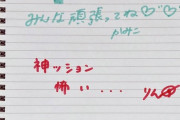 みんな頑張ってね♡♡
神ッション
怖い...
りん